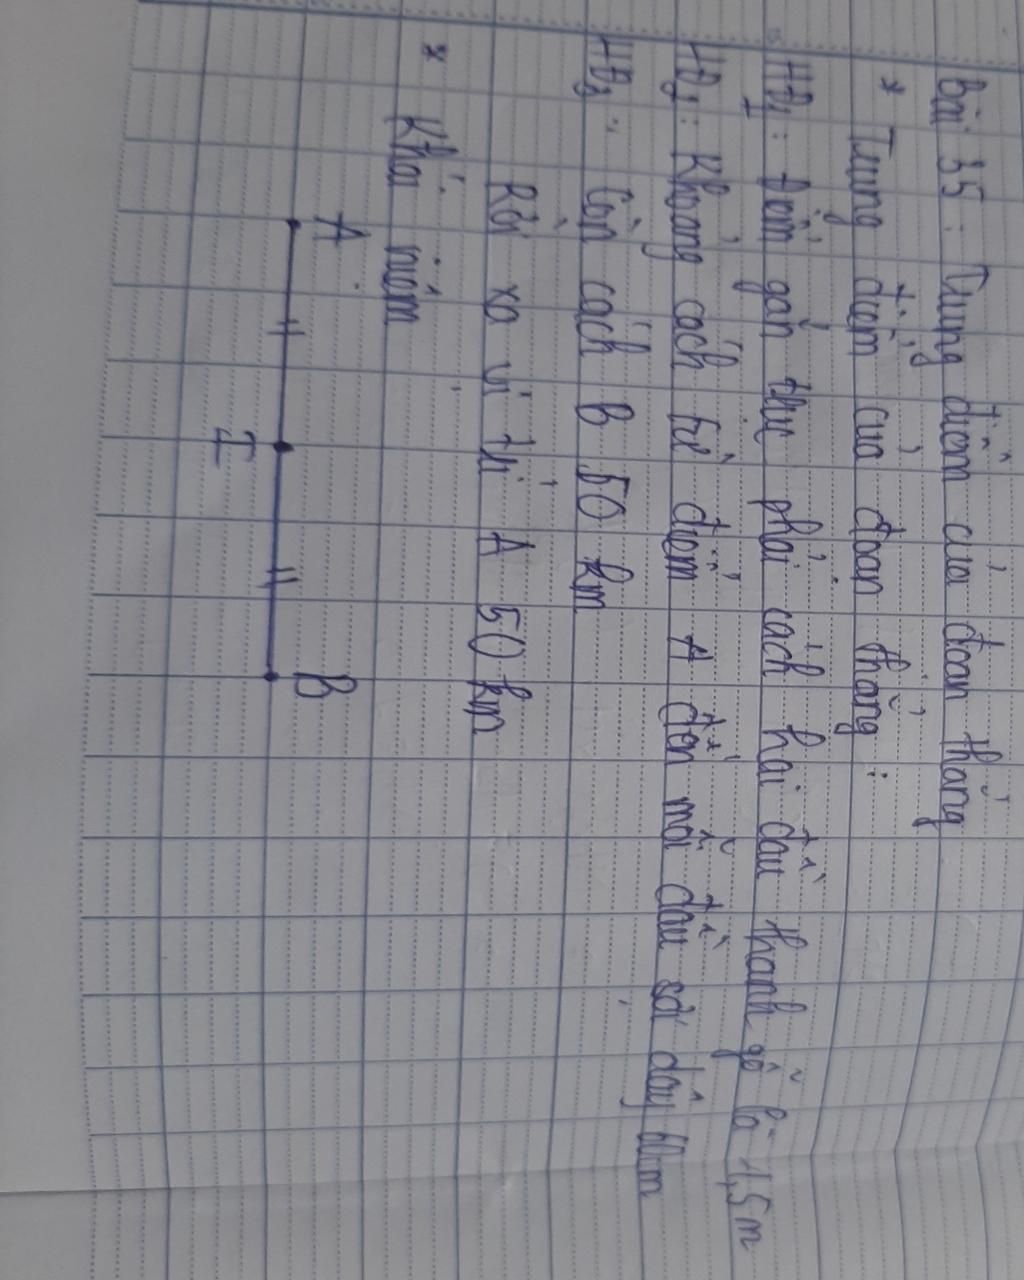 Bài 35: Trung điểm của đoạn thẳng
* Trung điểm của đoạn thẳng:
HĐ1: Điểm gắn thì phải cách hai đầu thanh gỗ là 1,5 m
HĐ2: Khoảng cách từ điểm A đến mỗi đầu sợi dây
HĐ3: Còn cách B 50 km
Rời xa vị trí A 50 km
* Khái niệm
A
I
B